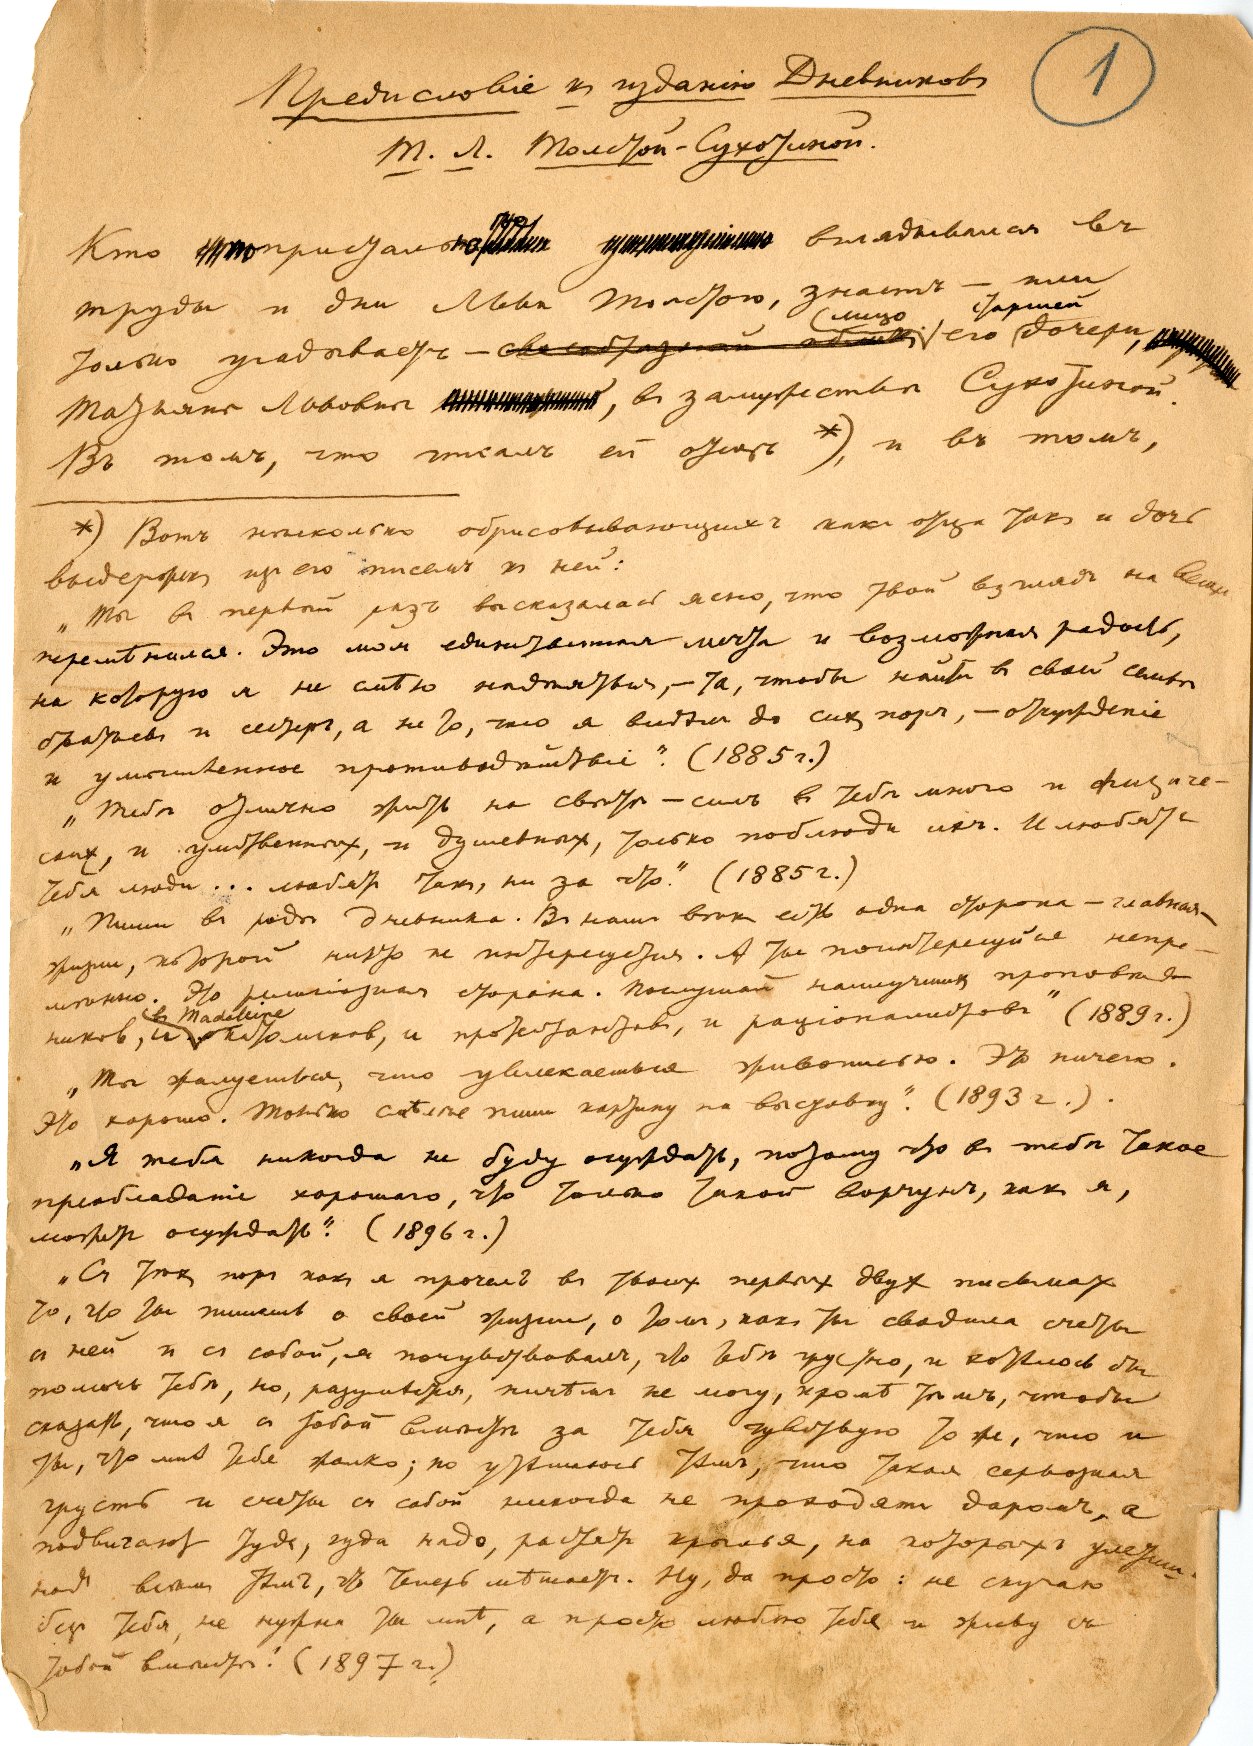 1
Предисловіе к изданію Дневников
Т. Л. Толстой-Сухотиной.
Кто пристально вглядывался въ
труды и дни Льва Толстого, знаетъ – или
лицо старшей
только угадываетъ – своеобразный облик его дочери,
Татьяны Львовны, в замужествѣ Сухотиной.
Въ томъ, что писалъ ей отецъ *), и въ томъ,
*) Вотъ нѣсколько обрисовывающихъ какъ отца такъ и дочь
выдержекъ из его писемъ к ней:
„Ты в первый разъ высказалась ясно, что твой взглядъ на вещи
перемѣнился. Это моя единственная мечта и возможная радость,
на которую я не смѣю надѣяться, – та, чтобы найти в своей семьѣ
братьевъ и сестеръ, а не то, что я видѣлъ до сих поръ, – отчужденіе
и умышленное противодѣйствіе". (1885 г.)
„Тебѣ отлично жить на свѣтѣ – силъ в тебѣ много и физиче-
ских, и умственных, и душевных, только поблюди их. И любятъ
тебя люди ... любятъ такъ, ни за что." (1885 г.)
„Пиши в родѣ дневника. В наше время есть одна сторона – главная –
жизни, которой никто не интересуется. А ты поинтересуйся непре-
мѣнно. Это религіозная сторона. Послушай наилучших проповѣд-
в Madeleine
ников, и католиков, и протестантовъ, и раціоналистовъ" (1889 г.)
„Ты жалуешься, что увлекаешься живописью. Это ничего.
Это хорошо. Только смѣлѣе пиши картину на выставку". (1893 г.).
„Я тебя никогда не буду осуждать, потому что в тебѣ такое
преобладаніе хорошаго, что только такой ворчунъ, как я,
можетъ осуждать". (1896 г.)
„Съ тѣх поръ как я прочелъ в твоих первых двух письмах
то, что ты пишешь о своей жизни, о томъ, какъ ты сводила счеты
с ней и с собой, я почувствовалъ, что тебѣ грустно, и хотѣлось бы
помочь тебѣ, но, разумѣется, ничѣмъ не могу, кромѣ тѣмъ, чтобы
сказать, что я с тобой вмѣстѣ за тебя чувствую то же, что и
ты, что мнѣ тебя жалко; но утѣшаюсь тѣмъ, что такая серьозная
грусть и счеты съ собой никогда не проходятъ даромъ, а
подвигаютъ туда, куда надо, растятъ крылья, на которыхъ улетишь
надъ всѣмъ тѣмъ, что теперь мѣшаетъ. Ну, да просто: не скучаю
без тебя, не нужна ты мнѣ, а просто люблю тебя и живу съ
тобой вмѣстѣ." (1897 г.)